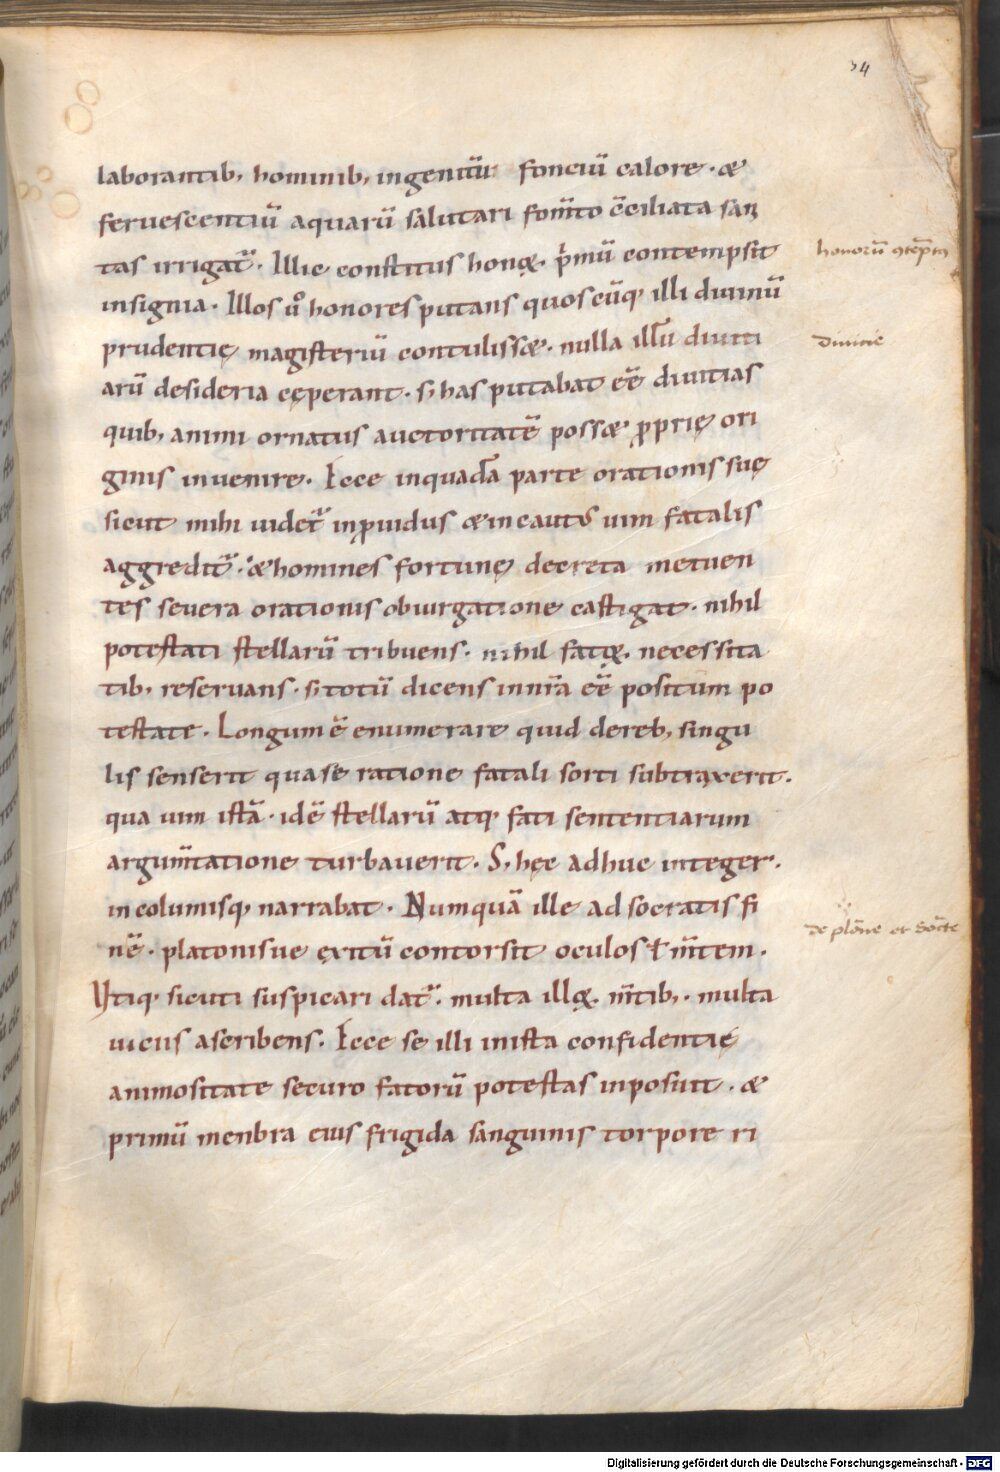 34
laborantib; hominib; ingentiū fonciū calore. &
feruescentiū aquarū salutari fom̄to c̄ciliata sani
tas irrigat̄. Illic constitus honoȩ. p̄mū contempsit honorū ɔtēptꝰ
insignia. Illos ů honores putans quoscūq; illi diuinū
prudentię magisteriū contuliss&. nulla illū diuiti diuicie
arū desideria cęperant. s; has putabat eē diuitias
quib; animi ornatus auctoritatē poss& ꝓprię ori
ginis inuenire. Ecce inquadā parte orationis suę
sicut mihi uidet̄ inꝓuidus &incautus uim fatalis
aggredit̄. &homines fortunę decreta metuen
tes seuera orationis obiurgatione castigat. nihil
potestati stellarū tribuens. nihil fatoȩ. necessita
tib; reseruans. s; totū dicens innr̄a eē positum po
testate. Longum ē enumerare quid dereb; singu
lis senserit qua se ratione fatali sorti subtraxerit.
qua uim istā. idē stellarū atq; fati sententiarum
argum̄tatione turbauerit. S; hęc adhuc integer.
incolumisq; narrabat. Numquā ille ad socratis fi
nē. platonisue exitū contorsit oculos ł m̄tem. de plōne et Socte
Vtiq; sicuti suspicari dat̄. multa illoȩ. m̄tib;. multa
uicus ascribens. Ecce se illi inista confidentię
animositate securo fatorū potestas inposuit. &
primū menbra eius frigida sanguinis torpore ri
Digitalisierung gefördert durch die Deutsche Forschungsgemeinschaft - DFG